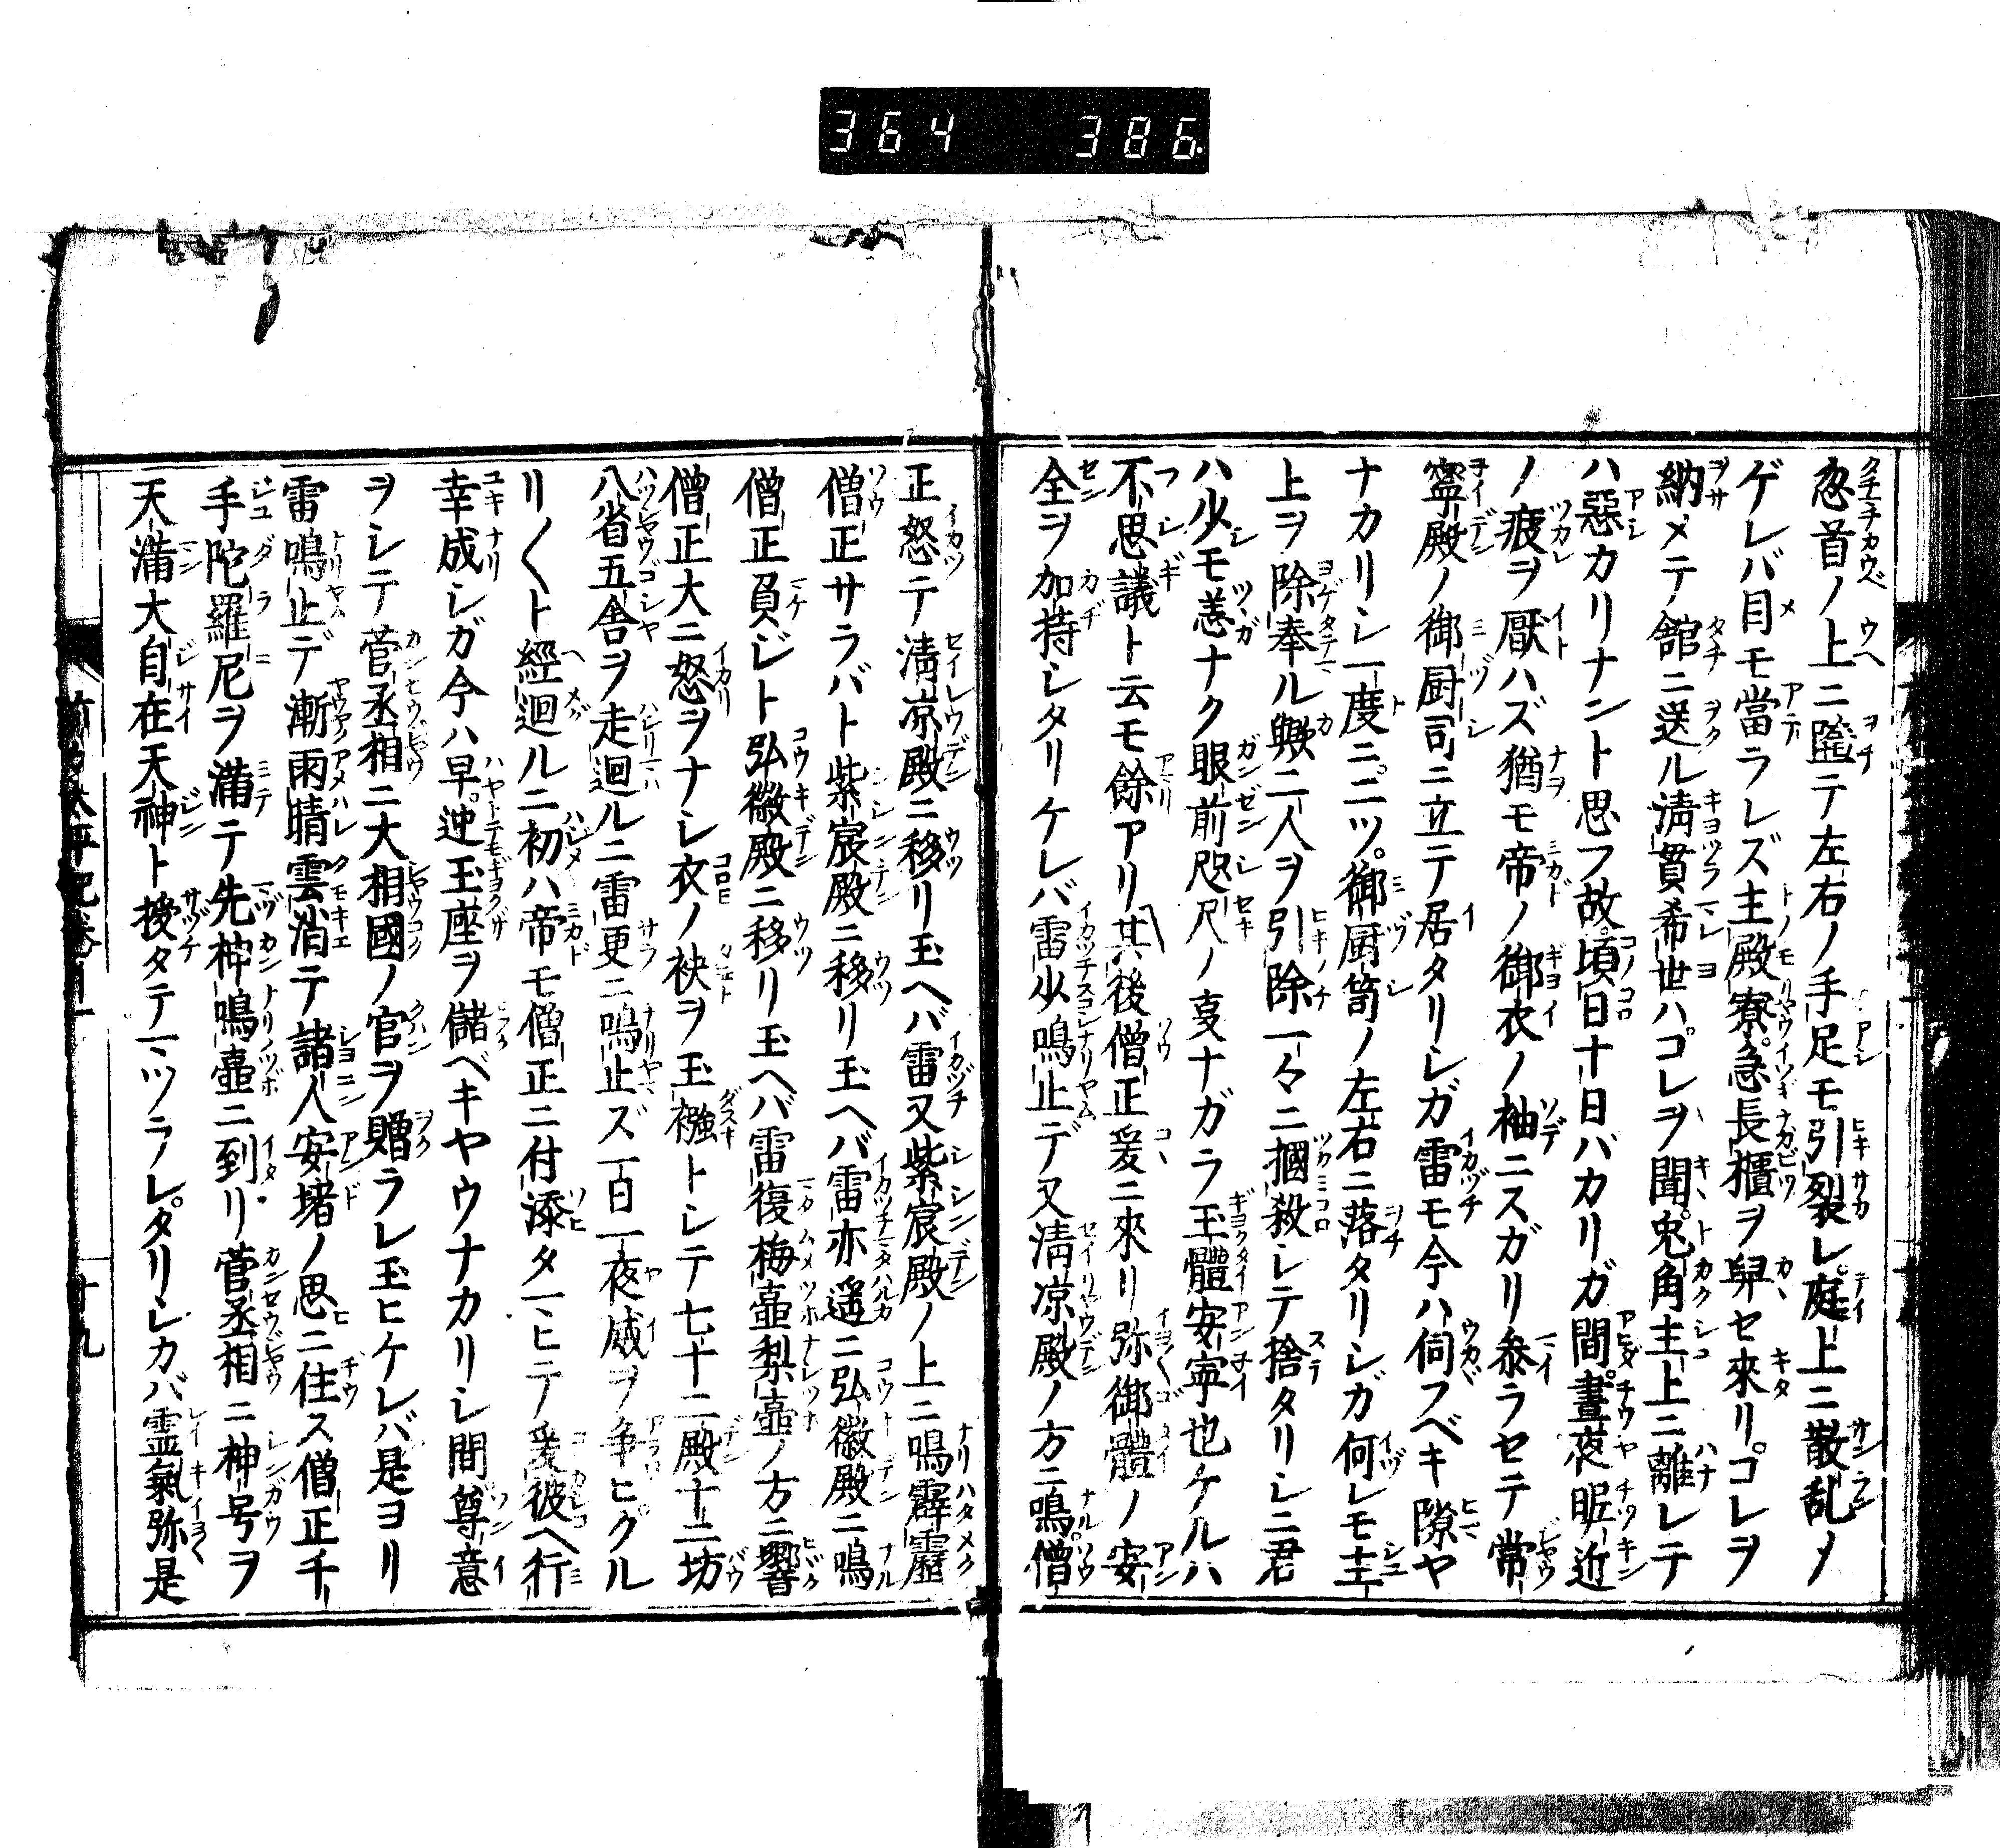 364 386
忽首ノ上ニ隨テ左右ノ手足モ引裂レ庭上ニ散乱ノ
ゲレバ目モ當ラレズ主殿寮急長櫃ヲ舁セ來リコレヲ
納メテ舘ニ送ル淸貫希世ハコレヲ聞兎角主上ニ離レテ
ハ惡カリナント思フ故頃日十日バカリガ間晝夜昵近
ノ疲ヲ厭ハズ猶モ帝ノ御衣ノ袖ニスガリ參ラセテ常
寧殿ノ御厨司ニ立テ居タリシガ雷モ今ハ伺フベキ隙ヤ
ナカリシ一度ニ二ツ御厨笥ノ左右ニ落タリシガ何レモ主
上ヲ除奉ル歟二人ヲ引除一々ニ摑殺シテ捨タリシニ君
ハ少モ恙ナク眼前咫尺ノ叓ナガラ玉體安寧也ケルハ
不思議ト云モ餘アリ其後僧正爰ニ來リ弥御體ノ安
全ヲ加持シタリケレバ雷少鳴止デ又淸凉殿ノ方ニ鳴僧
正怒テ淸凉殿ニ移リ玉ヘバ雷又紫宸殿ノ上ニ鳴霹靂
僧正サラバト紫宸殿ニ移リ玉ヘバ雷亦遥ニ弘徽殿ニ鳴
僧正負ジト弘徽殿ニ移リ玉ヘバ雷復梅壷梨壷ノ方ニ響
僧正大ニ怒ヲナシ衣ノ袂ヲ玉襁トシテ七十二殿十二坊
八省五舎ヲ走迴ルニ雷更ニ鳴止ズ一日一夜威ヲ争ヒグル
リ〱ト經迴ルニ初ハ帝モ僧正ニ付添タマヒテ爰彼ヘ行
幸成シガ今ハ早迚玉座ヲ儲ベキヤウナカリシ間尊意
ヲシテ菅丞相ニ大相國ノ官ヲ贈ラレ玉ヒケレバ是ヨリ
雷鳴止デ漸雨晴雲消テ諸人安堵ノ思ニ住ス僧正千
手陀羅尼ヲ滿テ先神鳴壷ニ到リ菅丞相ニ神号ヲ
天滿大自在天神ト授タテマツラレタリシカバ霊氣弥是
前太平記卷
十九